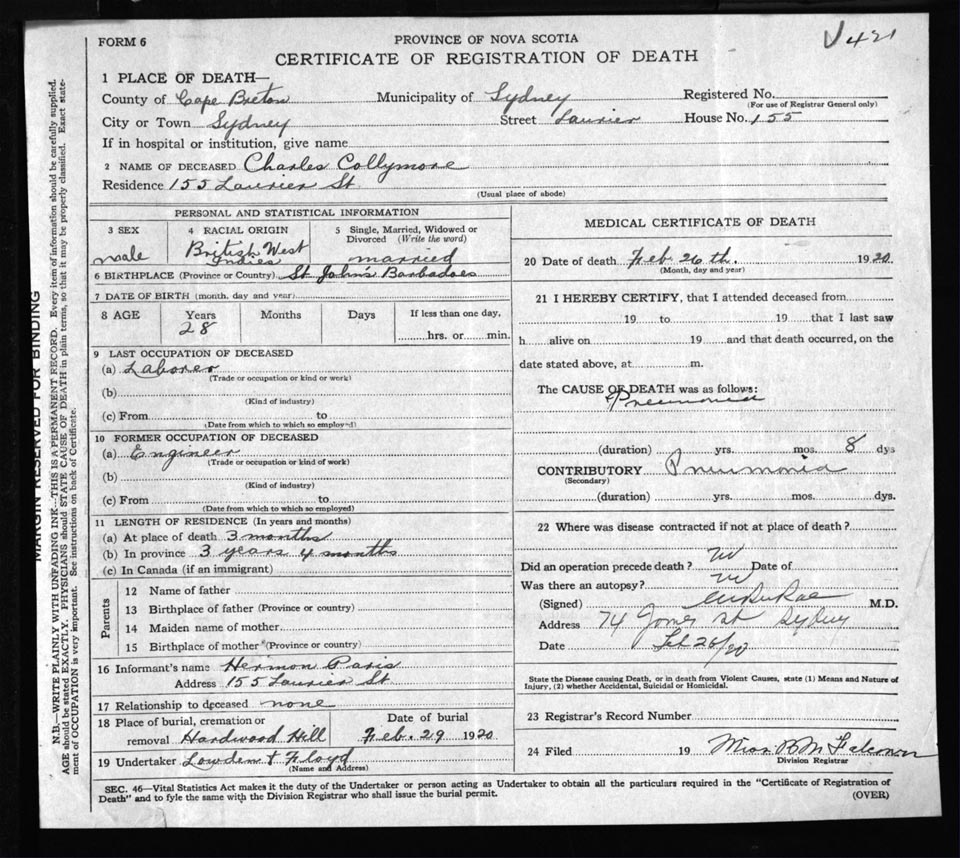 FORM 6
PROVINCE OF NOVA SCOTIA
V 421
CERTIFICATE OF REGISTRATION OF DEATH
1 PLACE OF DEATH—
County of Cape Breton Municipality of Sydney Registered No.
(For use of Registrar General only)
City or Town Sydney Street Laurier House No. 155
If in hospital or institution, give name
2 NAME OF DECEASED Charles Collymore
Residence 155 Laurier St.
(Usual place of abode)
PERSONAL AND STATISTICAL INFORMATION
3 SEX
male
4 RACIAL ORIGIN
British West
Indies
5 Single, Married, Widowed or
Divorced (Write the word)
married
6 BIRTHPLACE (Province or Country) St John's Barbadoes
7 DATE OF BIRTH (month, day and year)
8 AGE Years Months Days If less than one day,
28
hrs. or min.
9 LAST OCCUPATION OF DECEASED
(a) Laborer
(Trade or occupation or kind or work)
(b)
(Kind of industry)
(c) From to
(Date from which to which so employed)
10 FORMER OCCUPATION OF DECEASED
(a) Engineer
(Trade or occupation or kind of work)
(b)
(Kind of industry)
(c) From to
(Date from which to which so employed)
11 LENGTH OF RESIDENCE (In years and months)
(a) At place of death 3 months
(b) In province 3 years 4 months
(c) In Canada (if an immigrant)
Parents
12 Name of father
13 Birthplace of father (Province or country)
14 Maiden name of mother
15 Birthplace of mother (Province or country)
16 Informant's name Hermon Paris
Address 155 Laurier St.
17 Relationship to deceased none
18 Place of burial, cremation or
removal Hardwood Hill
Date of burial
Feb. 29 1920
19 Undertaker Lowden & Floyd
(Name and Address)
MEDICAL CERTIFICATE OF DEATH
20 Date of death Feb 26 th. 1920.
(Month, day and year)
21 I HEREBY CERTIFY, that I attended deceased from
19 to 19 that I last saw
h alive on 19 and that death occurred, on the
date stated above, at m.
The CAUSE OF DEATH was as follows:
Pneumonia
(duration) yrs. mos. 8 dys
CONTRIBUTORY Pneumonia
(Secondary)
(duration) yrs. mos. dys.
22 Where was disease contracted if not at place of death?
Did an operation precede death? Date of
Was there an autopsy?
(Signed) M.D.
Address 74 St Sydney
Date Feb 26/20
State the Disease causing Death, or in death from Violent Causes, state (1) Means and Nature of
Injury, (2) whether Accidental, Suicidal or Homicidal.
23 Registrar's Record Number
24 Filed 19 Miss
Division Registrar
SEC. 46—Vital Statistics Act makes it the duty of the Undertaker or person acting as Undertaker to obtain all the particulars required in the "Certificate of Registration of
Death" and to fyle the same with the Division Registrar who shall issue the burial permit.
(OVER)
MARGIN RESERVED FOR BINDING
N.B.—WRITE PLAINLY WITH UNFADING INK—THIS IS A PERMANENT RECORD. Every item of information should be carefully supplied.
AGE should be stated EXACTLY. PHYSICIANS should STATE CAUSE OF DEATH in plain terms, so that it may be properly classified. Exact state-
ment of OCCUPATION is very important. See instructions on back of Certificate.